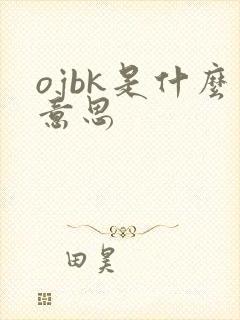 ojbk是什麽
意思
田昊